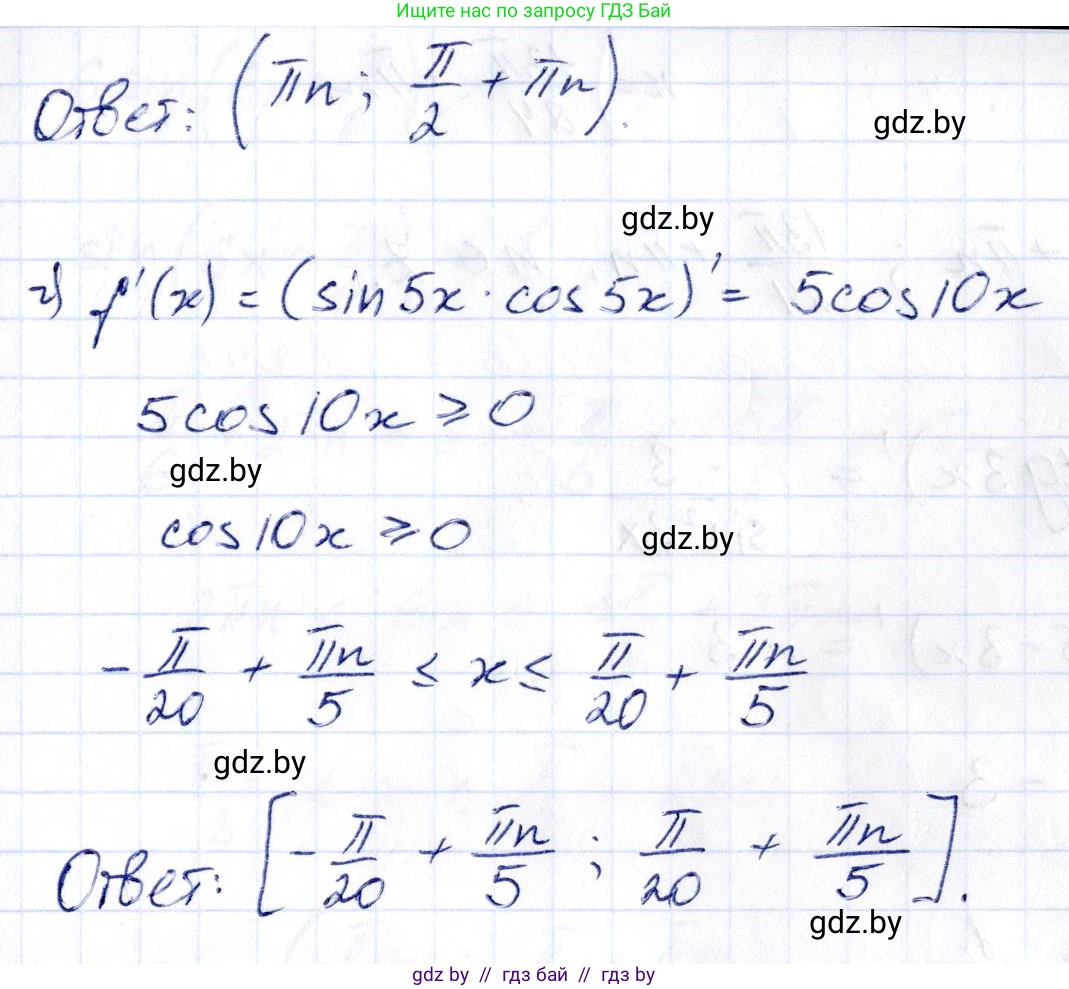 Ищите нас по запросу ГДЗ Бай
Ответ: (πn; π/2 + πn).
gdz.by
gdz.by
г) f'(x) = (sin 5x · cos 5x)' = 5cos 10x
5cos 10x ≥ 0
gdz.by
cos 10x ≥ 0
gdz.by
-π/20 + πn/5 ≤ x ≤ π/20 + πn/5
gdz.by
Ответ: [-π/20 + πn/5 ; π/20 + πn/5].
gdz.by
gdz.by // гдз бай // гдз by